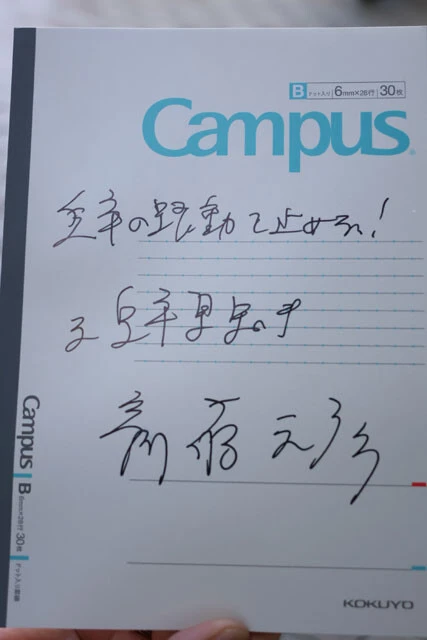 B ドット入り 6mm×26行 30枚
Campus
兵庫の躍動を止め
兵庫県知事
斎藤元彦
Campus B 6mm×26行 30枚 ドット入り罫線
KOKUYO